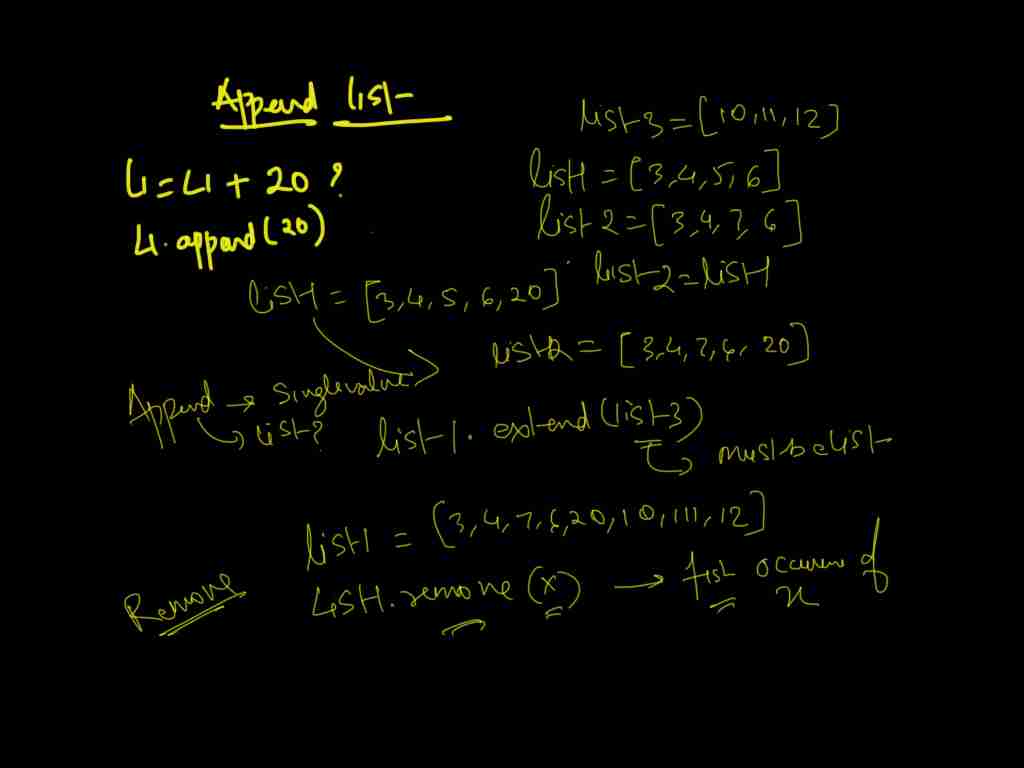 Append list
list3 = [10, 11, 12]
L1 = L1 + 20 ?
list1 = [3, 4, 5, 6]
L1.append(20)
list2 = [3, 4, 7, 6]
list2 = list1
list1 = [3, 4, 5, 6, 20]
list2 = [3, 4, 7, 6, 20]
Append → Single value
list?
list1.extend(list3)
must be list
list1 = [3, 4, 7, 6, 20, 10, 111, 12]
Remove
list1.remove(x) → first occurrence of x